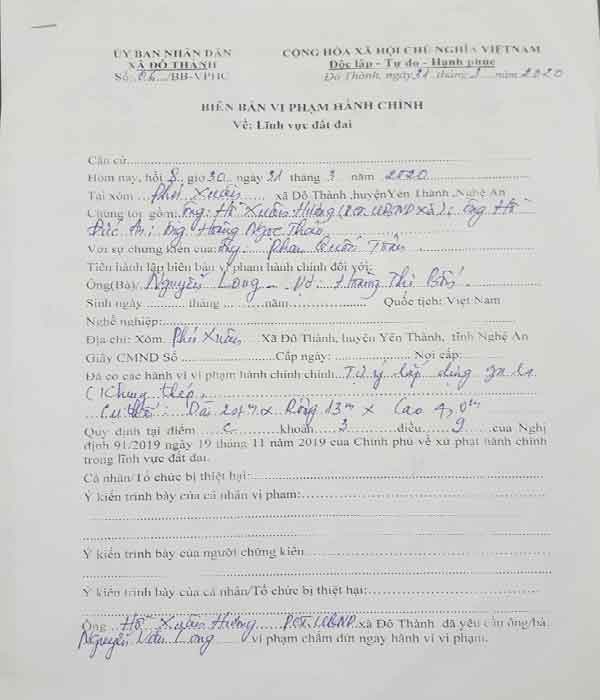 ỦY BAN NHÂN DÂN
XÃ ĐÔ THÀNH
Số: 06./BB-VPHC
CỘNG HÒA XÃ HỘI CHỦ NGHĨA VIỆT NAM
Độc lập - Tự do - Hạnh phúc
Đô Thành, ngày 31 tháng 3 năm 2020
BIÊN BẢN VI PHẠM HÀNH CHÍNH
Về: Lĩnh vực đất đai
Căn cứ
Hôm nay, hồi 8 giờ 30 ngày 31 tháng 3 năm 2020
Tại xóm Phú Xuân xã Đô Thành ,huyện Yên Thành ,Nghệ An
Chúng tôi gồm: Ông: Hồ Xuân Hương (P.CT. UBND xã); ông Hồ
Đức An; ông Hoàng Ngọc Thảo
Với sự chứng kiến của: Ông. Phan Quốc Tuấn
Tiến hành lập biên bản vi phạm hành chính đối với:
Ông(Bà): Nguyễn Long - Vợ: Hoàng Thị Bốn
Sinh ngày tháng năm Quốc tịch: Việt Nam
Nghề nghiệp:
Địa chỉ: Xóm. Phú Xuân Xã Đô Thành, huyện Yên Thành, tỉnh Nghệ An
Giấy CMND Số Cấp ngày: Nơi cấp:
Đã có các hành vi vi phạm hành chính chính Tự ý lắp dựng
(Khung thép,
Cụ thể: Dài 20m x Rộng 13m x Cao 4,0m
Quy định tại điểm c khoản 3 điều 9 của Nghị
định 91/2019 ngày 19 tháng 11 năm 2019 của Chính phủ về xử phạt hành chính
trong lĩnh vực đất đai.
Cá nhân/Tổ chức bị thiệt hại:
Ý kiến trình bày của cá nhân vi phạm:
Ý kiến trình bày của người chứng kiến
Ý kiến trình bày của cá nhân/Tổ chức bị thiệt hại:
Ông Hồ Xuân Hương P.CT. UBND xã Đô Thành đã yêu cầu ông/bà
Nguyễn Văn Long vi phạm chấm dứt ngay hành vi vi phạm.